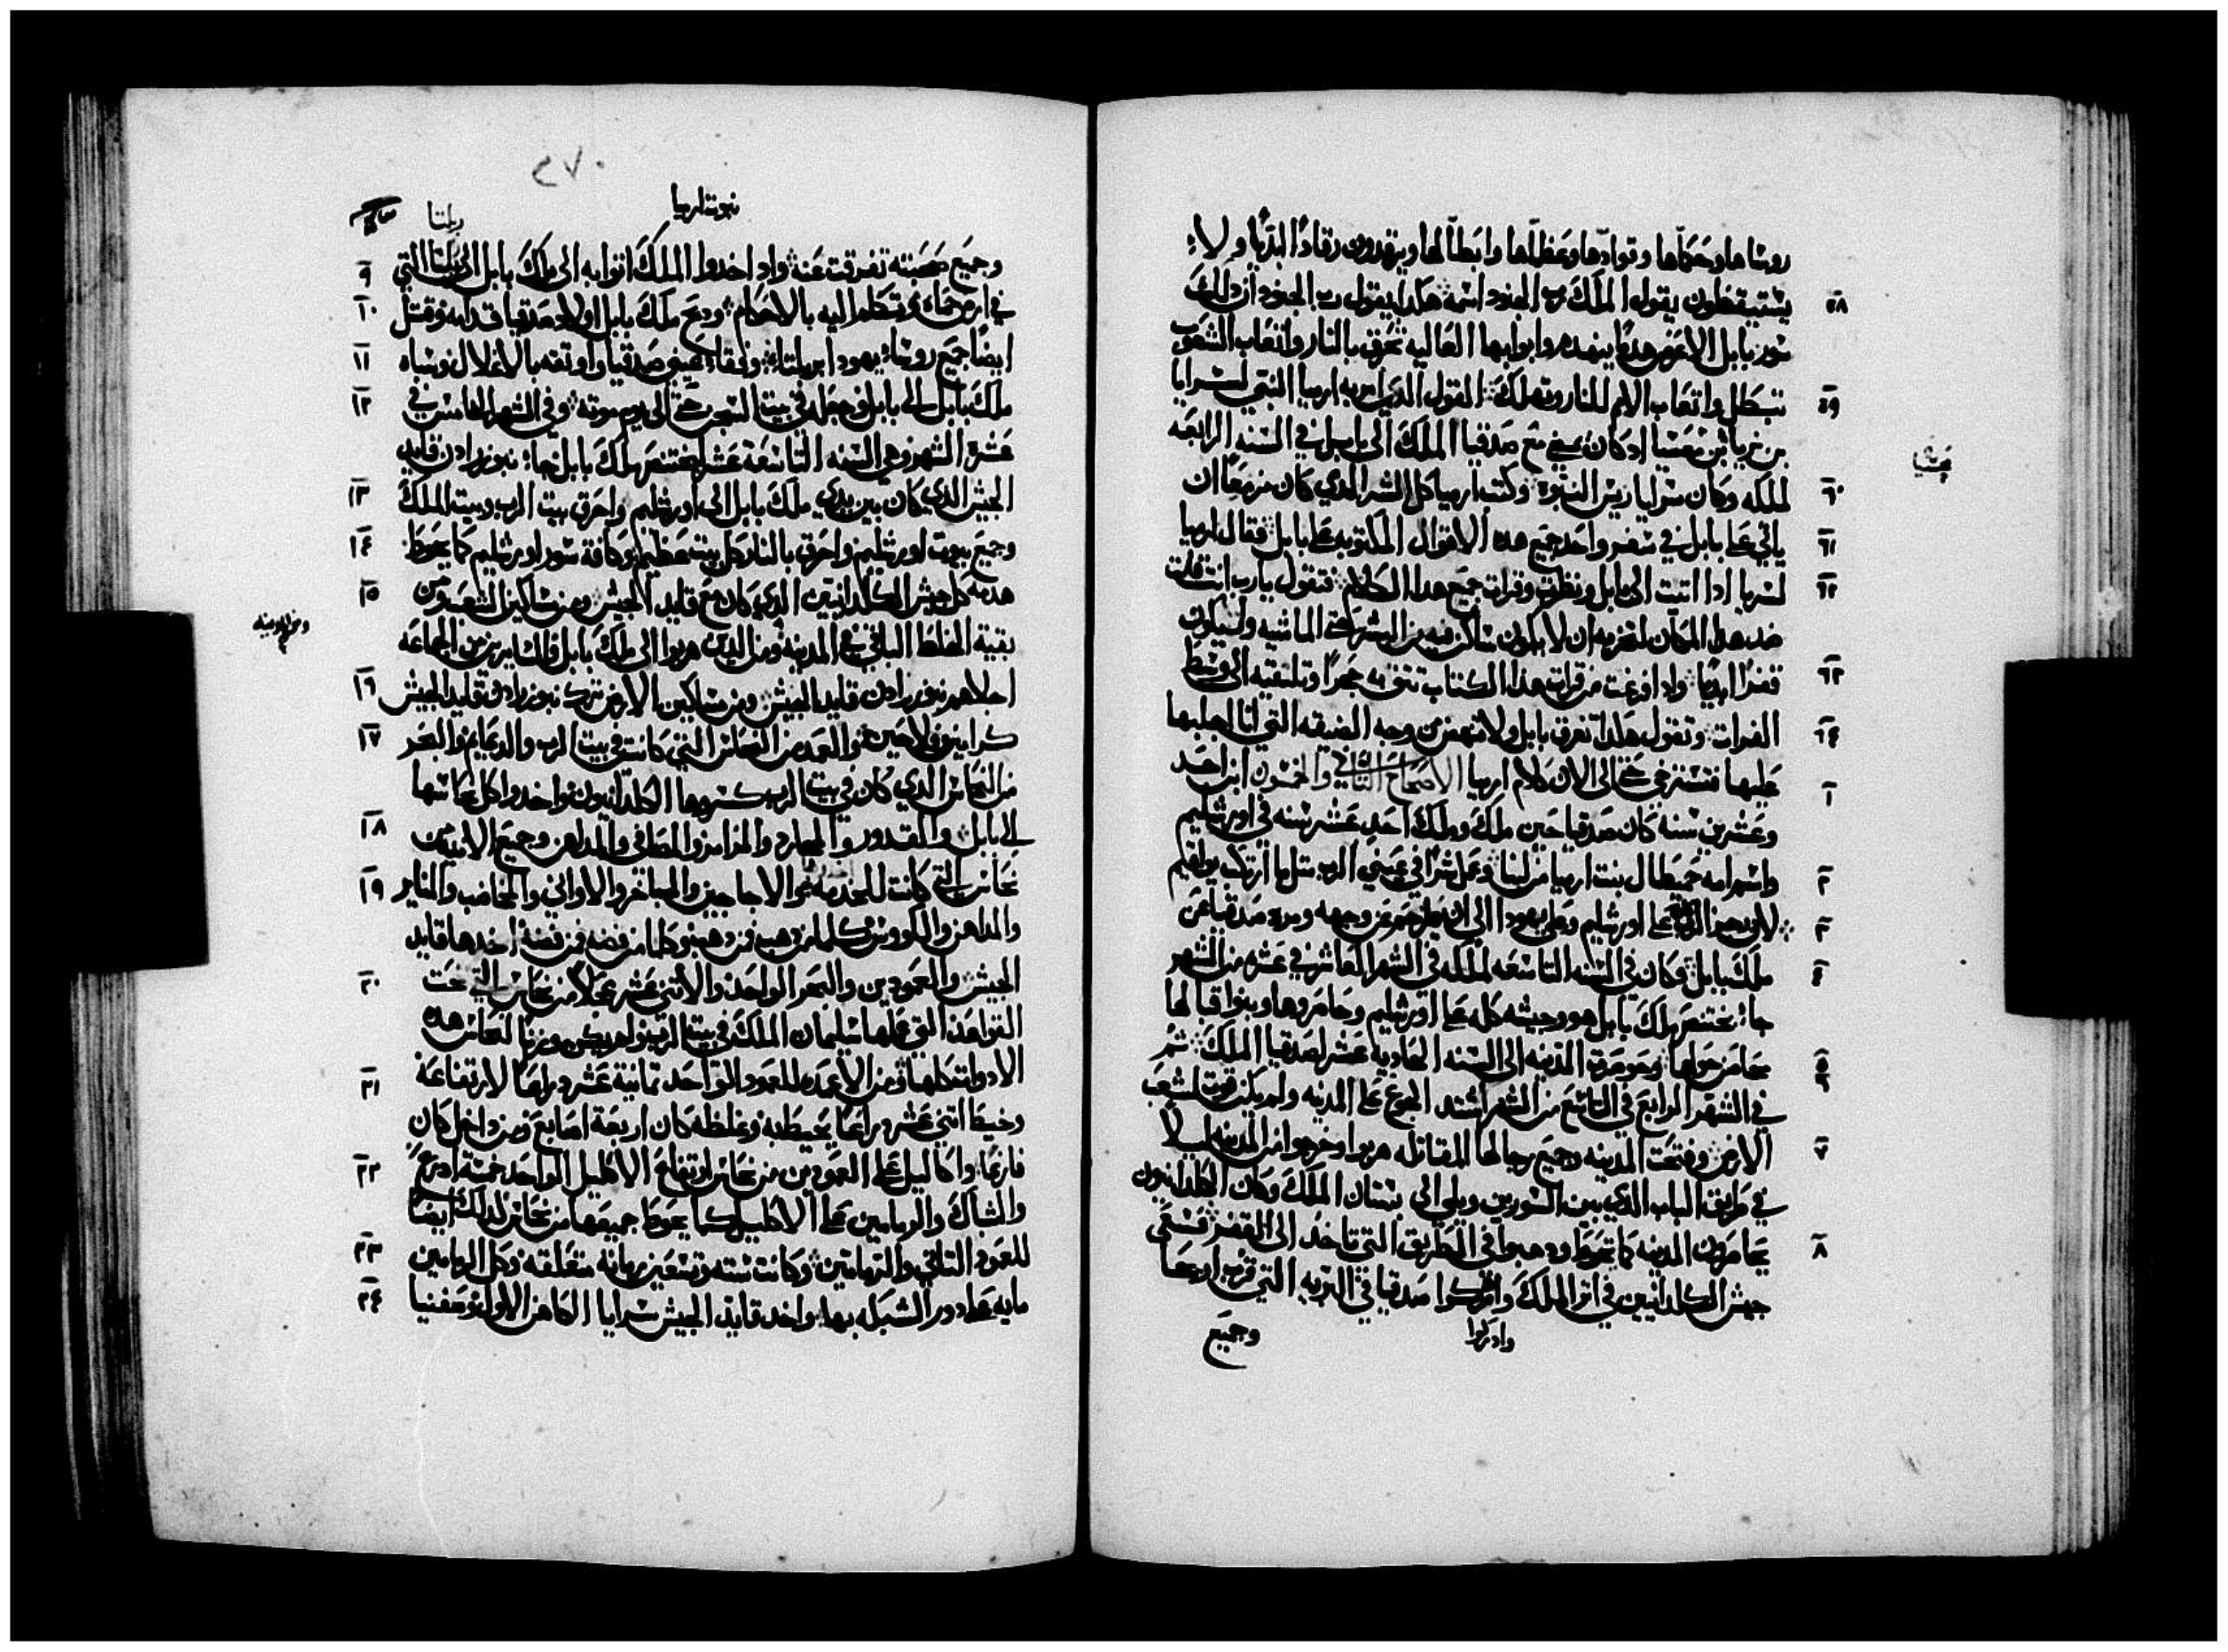 روساها وحكماها وقوادها وعظماها وابطالها ويرقدون رقادًا ابديًا ولا
٥٨ يستيقظون يقول الملك رب الجنود اسمه هكذا يقول رب الجنود ان ذلك
سور بابل الاعرض هدمًا ينهدم وابوابها العاليه تحرق بالنار واتعاب الشعوب
٥٩ تبطل واتعاب الامم للنار وتهلك القول الذي امر به ارميا النبي لسرايا
بن نريا بن معسيا اذ كان يمضي مع صدقيا الملك الى بابل في السنه الرابعه
٦٠ لملكه وكان سرايا ريس النبوة وكتب ارميا كل الشر الذي كان مزمعًا ان
٦١ ياتي على بابل في سفر واحد جميع هذه الاقوال المكتوبه على بابل فقال ارميا
٦٢ لسريا اذا اتيت الى بابل ونظرت وقرات جميع هذا الكلام فتقول يا رب انت قلت
ضد هذا المكان لتخربه ان لا يكون ساكن فيه من البشر حتى الماشيه وليكون
٦٣ قفرًا ابديًا واذا فرغت من قراة هذا الكتاب تشد به حجرًا وتلقيه الى وسط
٦٤ الفرات وتقول هكذا تغرق بابل ولا تنهض من وجه الضيقه التي انا اجلبها
١ عليها فتسترخي حتى الى الان كلام ارميا الاصحاح الثاني والخمسون ابن احد
وعشرين سنه كان صدقيا حين ملك وملك احد عشر سنه في اورشليم
٢ واسم امه حميطال بنت ارميا من لبنا وعمل شرًا في عيني الرب مثل ما ارتكب يواقيم
٣ لان رجز الرب على اورشليم وعلى يهودا الى ان طرحهم عن وجهه ومرد صدقيا عن
٤ ملك بابل وكان في السنه التاسعه لملكه في الشهر العاشر في عشره من الشهر
جاء بختنصر ملك بابل هو وجيشه كله على اورشليم وحاصروها وبنوا قبالها
٥ محاصر حولها وحوصرت المدينه الى السنه الحاديه عشر لصدقيا الملك ثم
٦ في الشهر الرابع في التاسع من الشهر اشتد الجوع على المدينه ولم يكن قوت لشعب
٧ الارض وفتحت المدينه وجميع رجالها المقاتله هربوا وخرجوا من المدينه ليلًا
في طريق الباب الذي بين السورين ويلي الى بستان الملك وكان الكلدانيون
٨ يحاصرون المدينه كما تحوط وذهبوا في الطريق التي تاخذ الى القفر فسعى
جيش الكلدانيين في اثر الملك وادركوا صدقيا في البريه التي قرب اريحا
وادركوا وجميع
نبوت ارميا
وجميع صحبته تفرقت عنه
٩ واذ اخذوا الملك اتوا به الى ملك بابل الى ربلتا التي
١٠ في ارض حماه وتكلم اليه بالاحكام وذبح ملك بابل اولاد صدقيا قدامه وقتل
١١ ايضًا جميع روسا يهودا بربلتا وفقا عيني صدقيا واوثقه بالاغلال وسباه
١٢ ملك بابل الى بابل وجعله في بيت السجن حتى الى يوم موته وفي الشهر الخامس في
عشرة الشهر وهي السنه التاسعة عشر لبختنصر ملك بابل جاء نبوزرادن قايد
١٣ الجيش الذي كان بين يدي ملك بابل الى اورشليم واحرق بيت الرب وبيت الملك
١٤ وجميع بيوت اورشليم واحرق بالنار كل بيت عظيم وكافة سور اورشليم كما يحوط
١٥ هدمه كل جيش الكلدانيين الذي كان مع قايد الجيش ومن مساكين الشعب ومن
بقية الخلط الباقي في المدينه ومن الذين هربوا الى ملك بابل والساير من الجماعه
ومن المدينه
١٦ اجلاهم نبوزرادن قايد الجيش ومن مساكين الارض ترك نبوزرادن قايد الجيش
١٧ كرامين وفلاحين والعمد من النحاس التي كانت في بيت الرب والدعايم والبحر
من النحاس الذي كان في بيت الرب كسروها الكلدانيون واخذوا كل نحاسها
١٨ الى بابل والقدور والمجارد والمزامر والمصافي والمداهن وجميع الانيه من
١٩ نحاس التي كانت للخدمه والاجاجين والمباخر والاواني والمخاضب والمناير
والمداهن والكووس كلما من ذهب فمن ذهب وكلما من فضه فمن فضة اخذها قايد
٢٠ الجيش والعمودين والبحر الواحد والاثني عشر عجلًا من نحاس التي تحت
القواعد التي عملها سليمان الملك في بيت الرب ولم يكن وزنًا لنحاس هذه
٢١ الادوات كلها ومن الاعمده للعمود الواحد ثمانية عشر دراعًا لارتفاعه
وخيط اثني عشر دراعًا يحيط به وغلظه كان اربعة اصابع ومن داخل كان
٢٢ فارغًا واكاليل على العمودين من نحاس ارتفاع الاكليل الواحد خمسة ادرع
والشباك والرمامين على الاكليل كما يحوط جميعها من نحاس كذلك ايضًا
٢٣ للعمود الثاني والرمامين وكانت سته وتسعين رمانه متعلقه وكل الرمامين
٢٤ مايه على دور الشبكه بها واخذ قايد الجيش سرايا الكاهن الاول وصفنيا